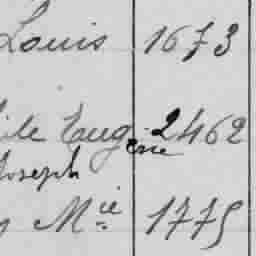 Louis 1673
ile Eugénie 2462
Joseph
Mie 1775